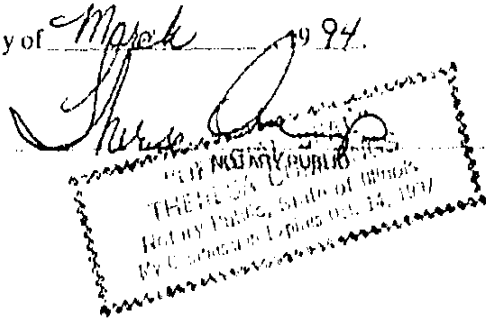 y of March 19 94.
Theresa
NOTARY PUBLIC
THERESA
Notary Public, State of Illinois
My Commission Expires Oct. 14, 1997